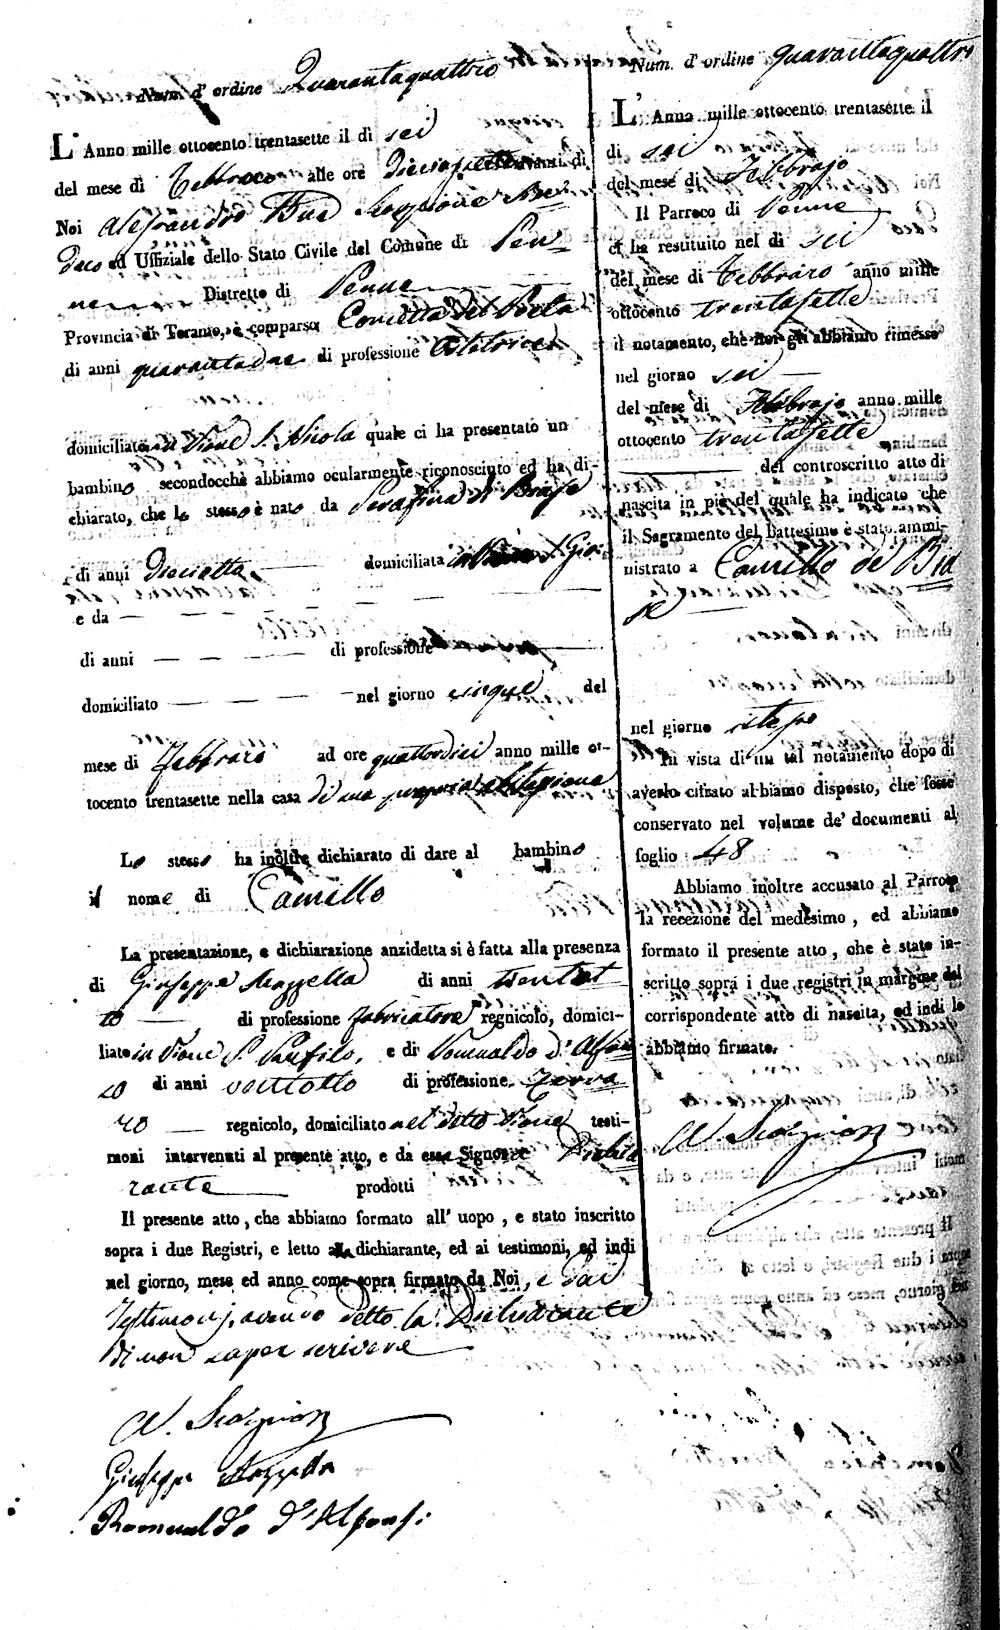 Num. d' ordine Quarantaquattro
L' Anno mille ottocento trentasette il dì sei
del mese di Febbraro alle ore diecisette avanti di
Noi Alessandro Scorpione
daco ed Uffiziale dello Stato Civile del Comune di Pen=
ne Distretto di Penne
Provincia di Teramo, è comparsa Concetta del Poeta
di anni quarantadue di professione Ostetrice
domiciliata in Rione S. Nicola quale ci ha presentato un
bambino secondocchè abbiamo ocularmente riconosciuto ed ha di-
chiarato, che lo stesso è nato da Serafina di Biase
di anni diciotto domiciliata in S. Gio:
e da — — —
di anni — — — di professione
domiciliato — — — nel giorno cinque del
mese di Febbraro ad ore quattordici anno mille ot-
tocento trentasette nella casa di sua propria abitazione
Lo stesso ha inoltre dichiarato di dare al bambino
il nome di Camillo
La presentazione, e dichiarazione anzidetta si è fatta alla presenza
di Giuseppe Mazzella di anni trentot
to — di professione fabricatore regnicolo, domici-
liato in Rione S. Panfilo, e di Romualdo d' Alfon
zo di anni ventotto di professione Ferra
ro — regnicolo, domiciliato nel detto Rione testi-
moni intervenuti al presente atto, e da essa Signora Dichia
rante prodotti
Il presente atto, che abbiamo formato all' uopo, e stato inscritto
sopra i due Registri, e letto alla dichiarante, ed ai testimoni, ed indi
nel giorno, mese ed anno come sopra firmato da Noi, e dai
Testimonj, avendo detto la Dichiarante
di non saper scrivere
A. Scorpione
Giuseppe Mazzella
Romualdo d'Alfonsi
Num. d' ordine quarantaquattro
L' Anno mille ottocento trentasette il
di sei
del mese di Febbrajo
Il Parroco di Penne
ci ha restituito nel di sei
del mese di Febbraro anno mille
ottocento trentasette
il notamento, che noi gli abbiamo rimesso
nel giorno sei
del mese di Febbrajo anno mille
ottocento trentasette
del controscritto atto di
nascita in piè del quale ha indicato che
il Sagramento del battesimo è stato ammi-
nistrato a Camillo di Bia
se
nel giorno stesso
In vista di un tal notamento dopo di
averlo cifrato abbiamo disposto, che fosse
conservato nel volume de' documenti al
foglio 48
Abbiamo inoltre accusato al Parroco
la recezione del medesimo, ed abbiamo
formato il presente atto, che è stato in-
scritto sopra i due registri in margine del
corrispondente atto di nascita, ed indi lo
abbiamo firmato.
A. Scorpione